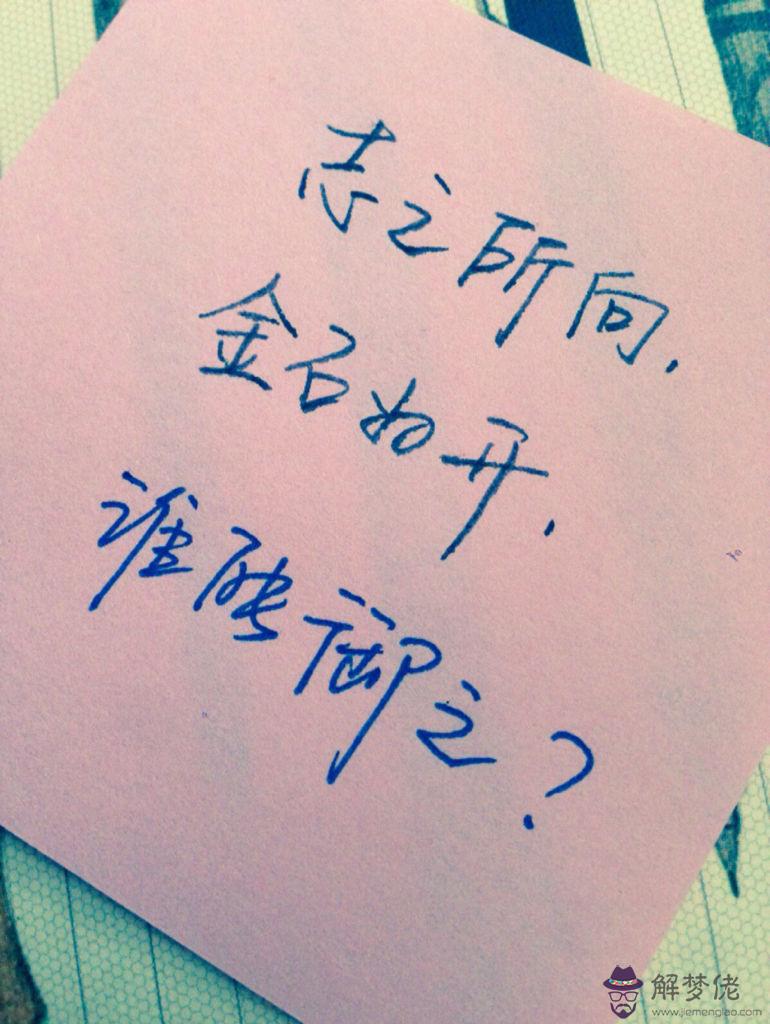 志之所向.
金石如开.
谁能御之?
解梦佬
www.jiemenglao.com